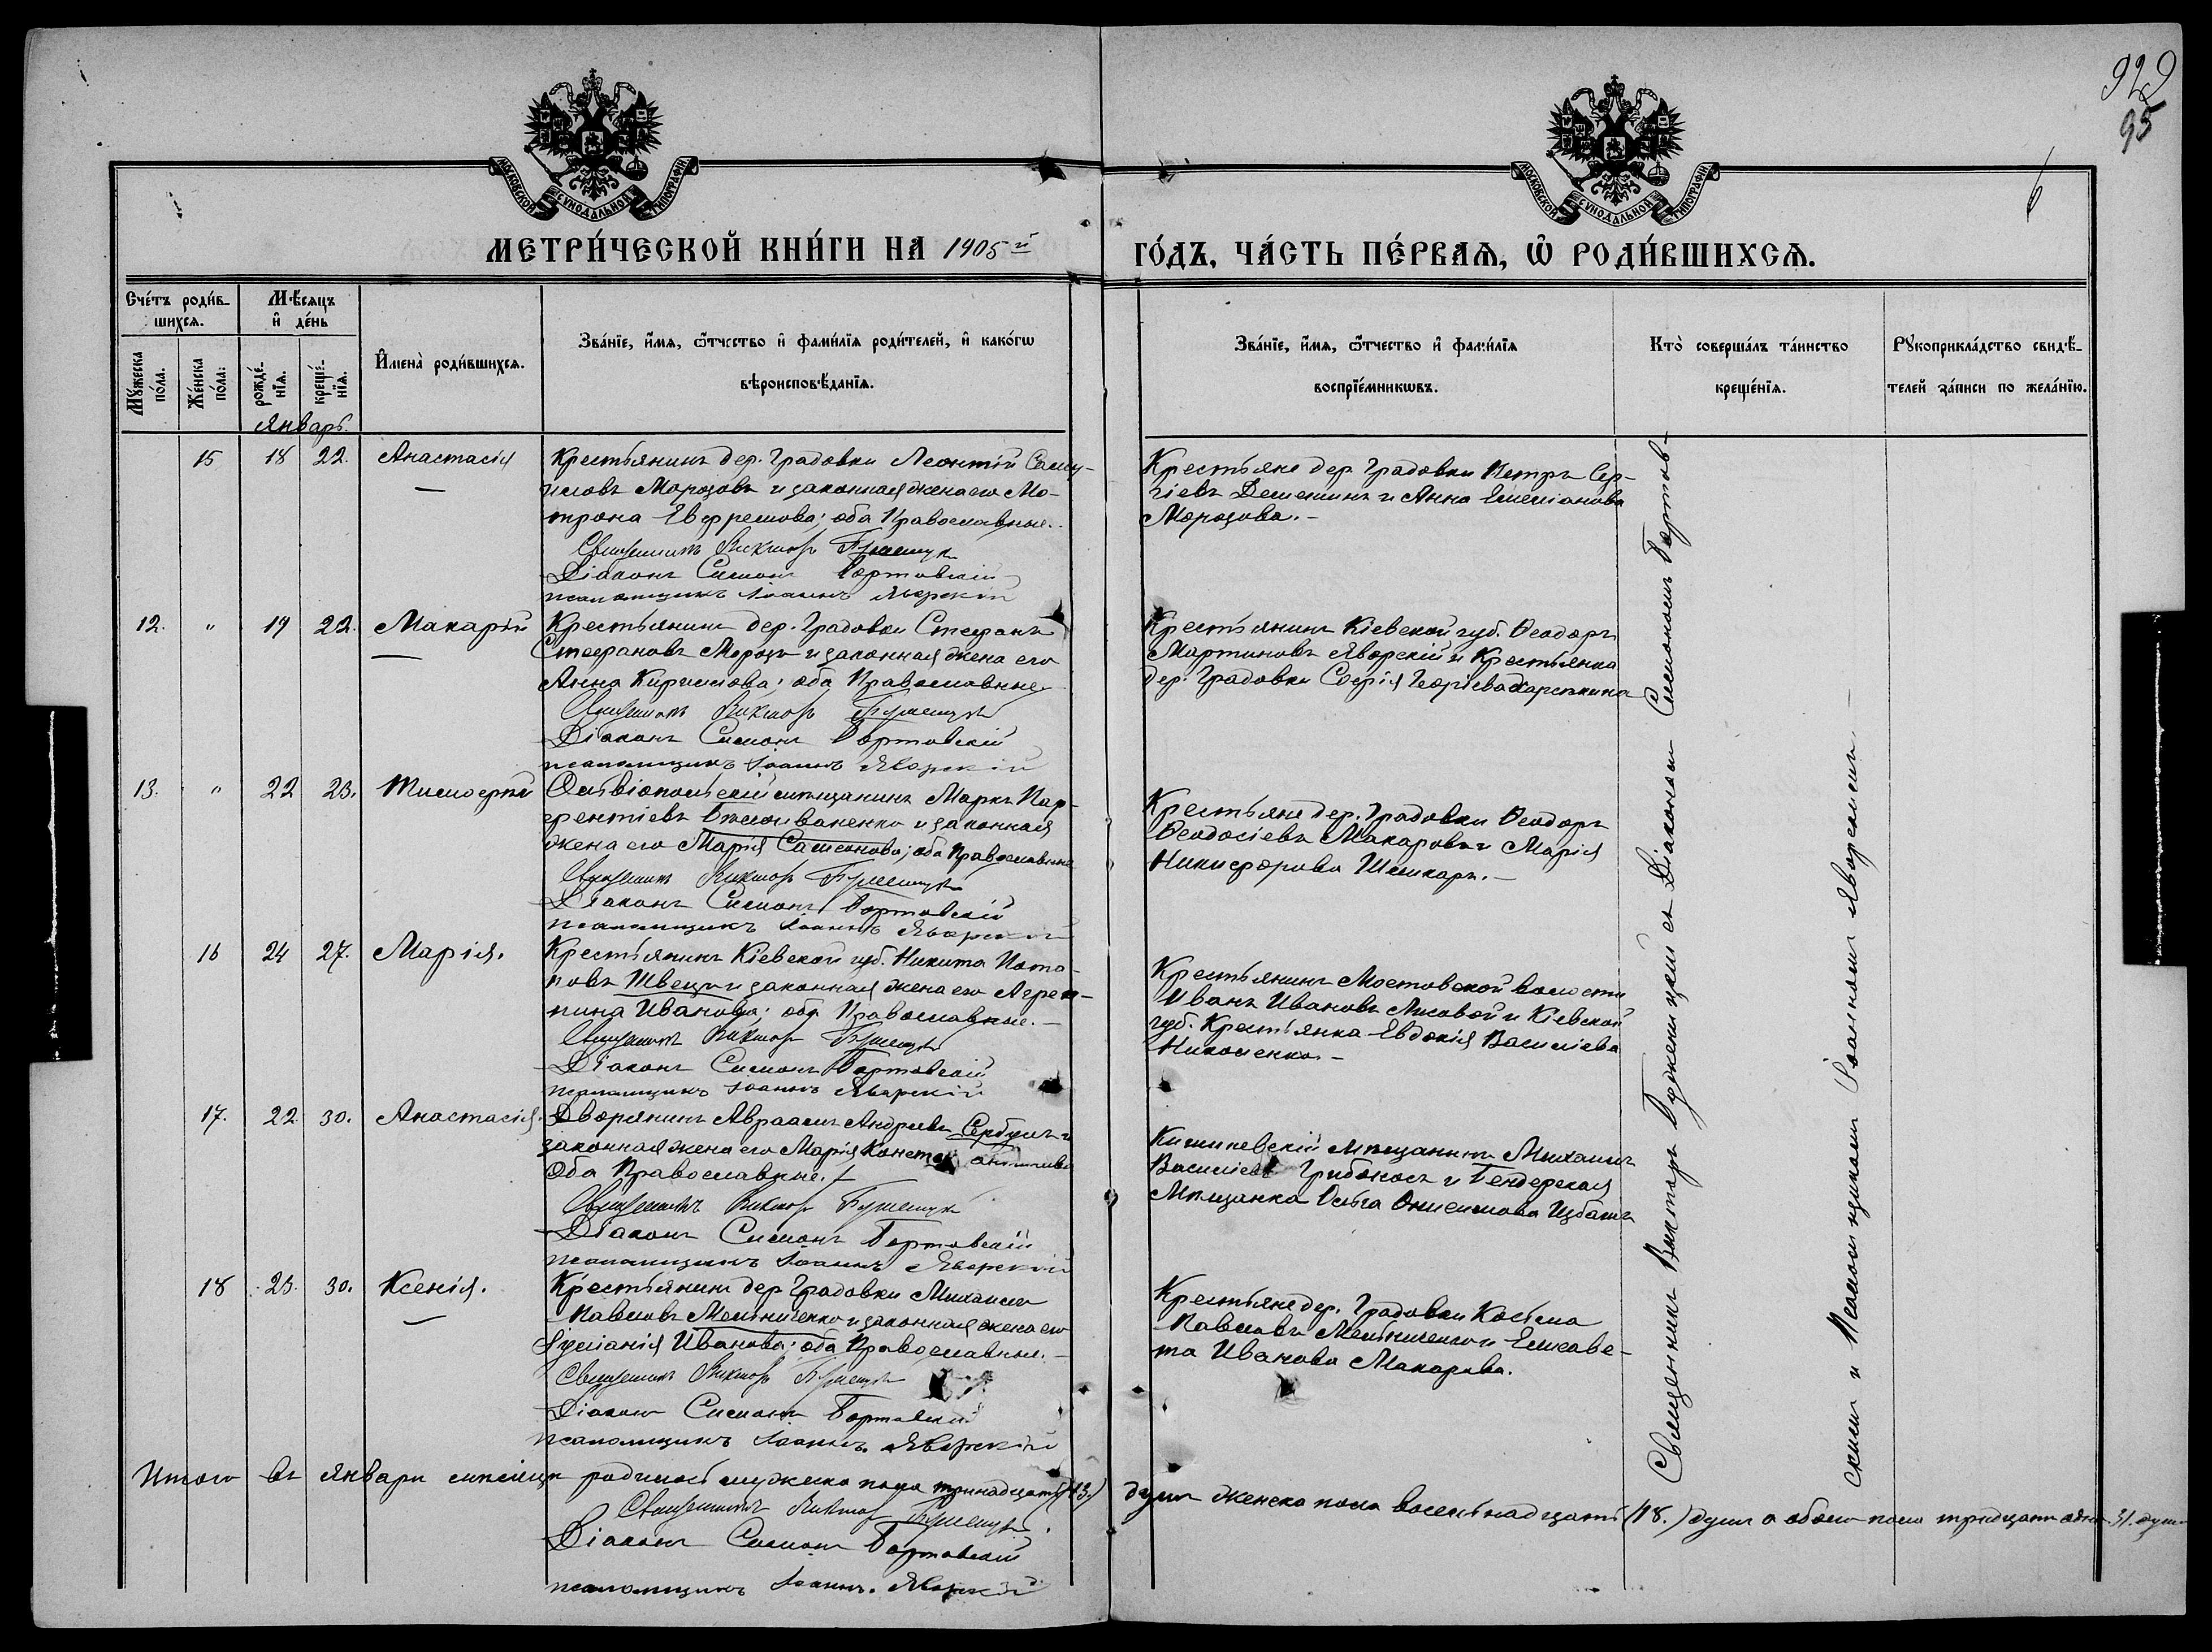 929
95
6
МОСКОВСКОЙ СѴНОДАЛЬНОЙ ТИПОГРАФІИ
МОСКОВСКОЙ СѴНОДАЛЬНОЙ ТИПОГРАФІИ
МЕТРИ́ЧЕСКОЙ КНИ́ГИ НА 1905й ГО́ДЪ, ЧА́СТЬ ПЕ́РВАЯ, Ѡ РОДИ́ВШИХСЯ.
Сче́тъ роди́в-
шихся.
Мꙋ́жеска по́ла.
Же́нска по́ла.
Мѣ́сяцъ
и҆ де́нь
рожде́-
нїя.
креще́-
нїя.
И҆мена̀ роди́вшихся.
Зва́нїе, и҆́мя, ѻ҆́тчество и҆ фами́лїя роди́телей, и҆ како́гѡ
вѣроисповѣ́данїя.
Зва́нїе, и҆́мя, ѻ҆́тчество и҆ фами́лїя
воспрїе́мникѡвъ.
Кто̀ соверша́лъ та́инство
креще́нїя.
Рꙋкоприкла́дство свидѣ́-
телей за́писи по жела́нїю.
Январь.
15 18 22. Анастасія
Крестьянинъ дер. Градовки Леонтій Саму-
иловъ Морозовъ и законная жена его Мо-
трона Евфремова; оба Православные.
Священникъ Викторъ
Діаконъ Симонъ Бортовскій
псаломщикъ Іоаннъ Яворскій
Крестьяне дер. Градовки Петръ Сер-
гіевъ и Анна Емеліанова
Морозова.
12. " 19 22. Макарій
Крестьянинъ дер. Градовки Стефанъ
Стефановъ Морозъ и законная жена его
Анна Кириллова; оба Православные
Священникъ Викторъ
Діаконъ Симонъ Бортовскій
псаломщикъ Іоаннъ Яворскій
Крестьянинъ Кіевской губ. Ѳеодоръ
Мартиновъ Яворскій и Крестьянка
дер. Градовки Софія Георгіева
13. " 22 23. Тимоѳей
Ольвіопольскій мѣщанинъ Маркъ Пар-
фентіевъ и законная
жена его Марія Самсонова; оба Православные
Священникъ Викторъ
Діаконъ Симонъ Бортовскій
псаломщикъ Іоаннъ Яворскій
Крестьяне дер. Градовки Ѳеодоръ
Ѳеодосіевъ Макаровъ и Марія
Никифорова
16 24 27. Марія.
Крестьянинъ Кіевской губ. Никита Пота-
повъ Швецъ и законная жена его Агрип-
пина Иванова; оба Православные.
Священникъ Викторъ
Діаконъ Симонъ Бортовскій
псаломщикъ Іоаннъ Яворскій
Крестьянинъ Мостовской волости
Иванъ Ивановъ Лисовой и Кіевской
губ. Крестьянка Евдокія Василіева
Николенко.
17. 22. 30. Анастасія.
Дворянинъ Авраамъ Андреевъ Сербулъ и
законная жена его Марія Константинова
Оба Православные.
Священникъ Викторъ
Діаконъ Симонъ Бортовскій
псаломщикъ Іоаннъ Яворскій
Кишиневскій мѣщанинъ Михаилъ
Василіевъ и Бендерская
Мѣщанка Ольга Онисимова
18 25. 30. Ксенія.
Крестьянинъ дер. Градовки Михаилъ
Павловъ Мельниченко и законная жена его
Іуліанія Иванова; оба Православные.
Священникъ Викторъ
Діаконъ Симонъ Бортовскій
псаломщикъ Іоаннъ Яворскій
Крестьяне дер. Градовки Косьма
Павловъ Мельниченко и Елисаве-
та Иванова Макарова.
Священникъ Викторъ съ Діакономъ Симономъ Бортов-
скимъ и Псаломщикомъ Іоанномъ Яворскимъ
Итого въ Январѣ мѣсяцѣ родилось мужеска пола тринадцать (13.) душъ женска пола восемьнадцать (18.) душъ а обоего пола тридцать одна 31. душа
Священникъ Викторъ
Діаконъ Симонъ Бортовскій
псаломщикъ Іоаннъ Яворскій